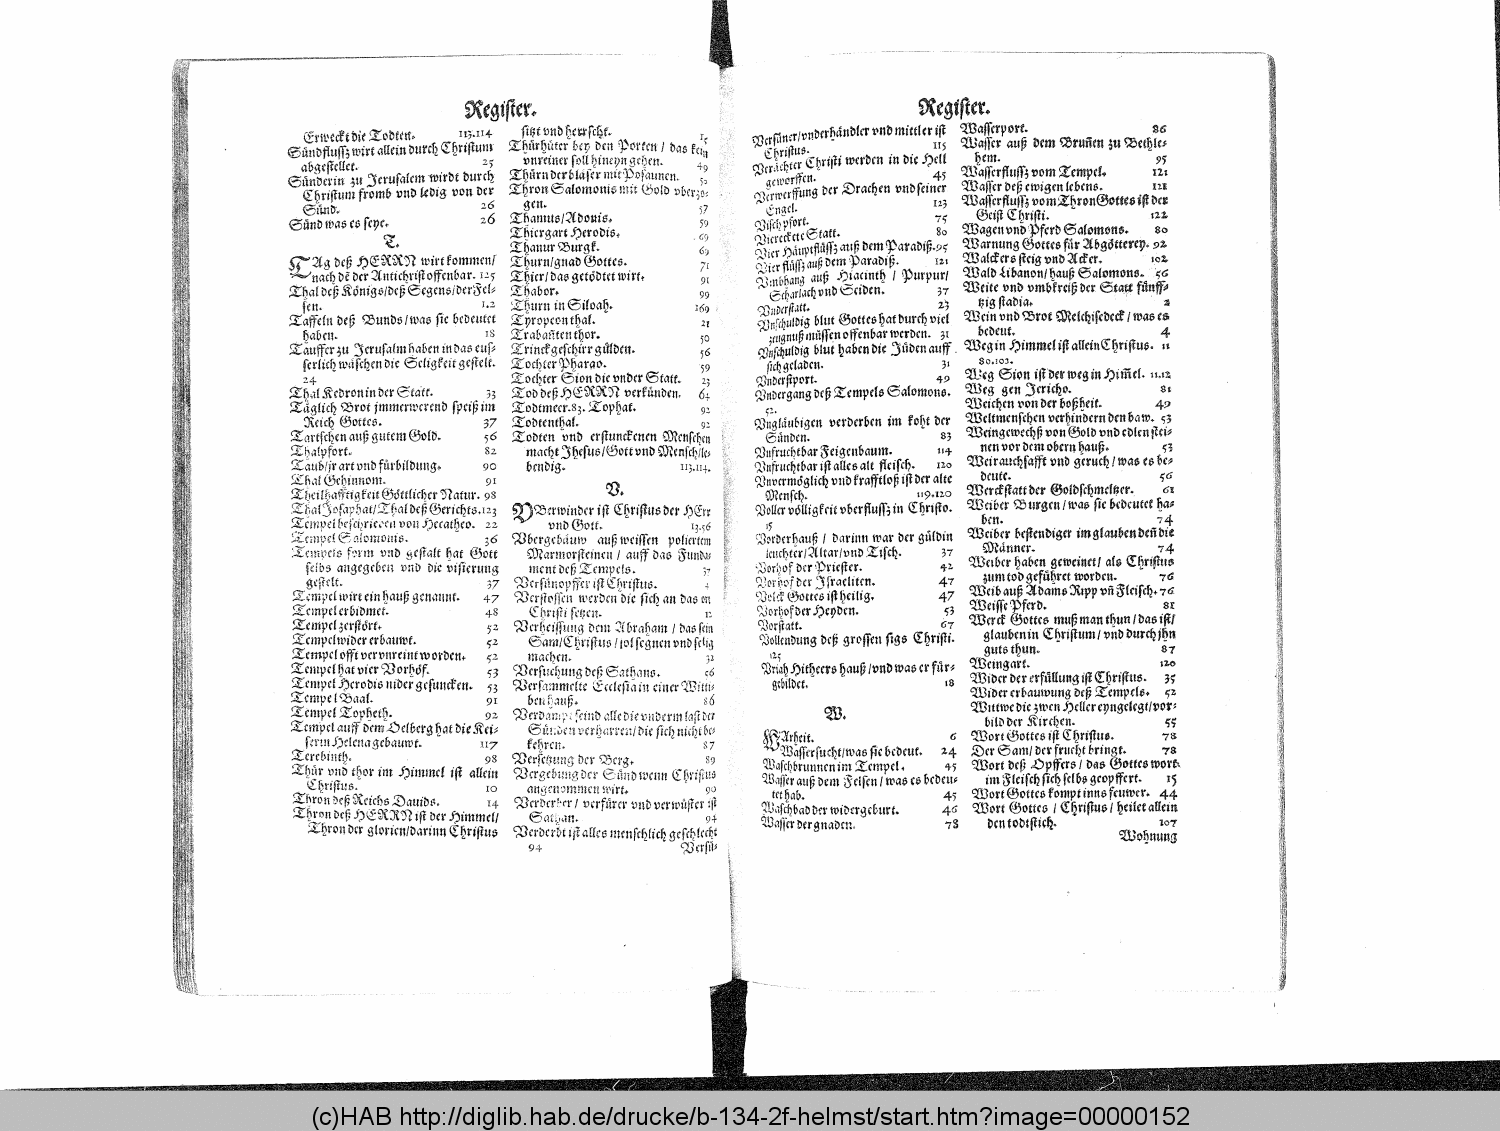 Register.
Erweckt die Todten. 113.114
Sündflussz wirt allein durch Christum
abgestellet. 25
Sünderin zu Jerusalem wirdt durch
Christum fromb vnd ledig von der
Sünd. 26
Sünd was es seye. 26
T.
TAg deß HERRN wirt kommen/
nach dē der Antichrist offenbar. 125
Thal deß Königs/deß Segens/der Fel-
sen. 1.2
Taffeln deß Bunds/was sie bedeutet
haben. 18
Täuffer zu Jerusalm haben in das eus-
serlich wäschen die Seligkeit gestelt.
24
Thal Kedron in der Statt. 33
Täglich Brot jmmerwerend speiß im
Reich Gottes. 37
Tartschen auß gutem Gold. 56
Thalpfort. 82
Taub/jr art vnd fürbildung. 90
Thal Gehinnom. 91
Theilhafftigkeit Göttlicher Natur. 98
Thal Josaphat/Thal deß Gerichts. 123
Tempel beschrieben von Hecatheo. 22
Tempel Salomonis. 36
Tempels form vnd gestalt hat Gott
selbs angegeben vnd die visierung
gestelt. 37
Tempel wirt ein hauß genannt. 47
Tempel erbidmet. 48
Tempel zerstört. 52
Tempel wider erbauwt. 52
Tempel offt vervnreint worden. 52
Tempel hat vier Vorhöf. 53
Tempel Herodis nider gesuncken. 53
Tempel Baal. 91
Tempel Topheth. 92
Tempel auff dem Oelberg hat die Kei-
serin Helena gebauwt. 117
Terebinth. 98
Thür vnd thor im Himmel ist allein
Christus. 10
Thron deß Reichs Dauids. 14
Thron deß HERRN ist der Himmel/
Thron der glorien/darinn Christus
sitzt vnd herrscht. 15
Thürhüter bey den Porten / das kein
vnreiner soll hineyn gehen. 49
Thürn der bläser mit Posaunen. 52
Thron Salomonis mit Gold vberzo-
gen. 57
Thamus/Adonis. 59
Thiergart Herodis. 69
Thanur Burgk. 69
Thurn/gnad Gottes. 71
Thier/das getödtet wirt. 91
Thabor. 99
Thurn in Siloah. 169
Tyropeon thal. 21
Trabañten thor. 50
Trinckgeschirr gülden. 56
Tochter Pharao. 59
Tochter Sion die vnder Statt. 23
Tod deß HERRN verkünden. 64
Todtmeer. 83. Tophat. 92
Todtenthal. 92
Todten vnd erstunckenen Menschen
macht Jhesus/Gott vnd Mensch/le-
bendig. 113.114.
V.
VBerwinder ist Christus der HErr
vnd Gott. 13.56
Vbergebäuw auß weissen poliertem
Marmorsteinen / auff das Funda-
ment deß Tempels. 37
Versünopffer ist Christus. 4
Verstossen werden die sich an das en
Christi setzen. 12
Verheissung dem Abraham / das sein
Sam/Christus / sol segnen vnd selig
machen. 32
Versuchung deß Sathans. 56
Versammelte Ecclesia in einer Witti-
ben hauß. 86
Verdampt seind alle die vnderm last der
Sünden verharren/die sich nicht be-
kehren. 87
Versetzung der Berg. 89
Vergebung der Sünd wenn Christus
angenommen wirt. 90
Verderber / verfürer vnd verwüster ist
Sathan. 94
Verderbt ist alles menschlich geschlecht
94 Versü-
Register.
Versüner/vnderhändler vnd mittler ist
Christus. 115
Verächter Christi werden in die Hell
geworffen. 45
Verwerffung der Drachen vnd seiner
Engel. 123
Vischpfort. 75
Viereckete Statt. 80
Vier Häuptflüssz auß dem Paradiß. 95
Vier flüssz auß dem Paradiß. 121
Vmbhang auß Hiacinth / Purpur/
Scharlach vnd Seiden. 37
Vnderstatt. 23
Vnschuldig blut Gottes hat durch viel
zeugnuß müssen offenbar werden. 31
Vnschuldig blut haben die Jüden auff
sich geladen. 31
Vnderstport. 49
Vndergang deß Tempels Salomons.
52.
Vngläubigen verderben im koht der
Sünden. 83
Vnfruchtbar Feigenbaum. 114
Vnfruchtbar ist alles alt fleisch. 120
Vnvermöglich vnd krafftloß ist der alte
Mensch. 119.120
Voller völligkeit vberflussz in Christo.
15
Vorderhauß / darinn war der güldin
leuchter/Altar/vnd Tisch. 37
Vorhof der Priester. 42
Vorhof der Jsraeliten. 47
Volck Gottes ist heilig. 47
Vorhof der Heyden. 53
Vorstatt. 67
Vollendung deß grossen sigs Christi.
125
Vriah Hitheers hauß/vnd was er für-
gebildet. 18
W.
WArheit. 6
Wassersucht/was sie bedeut. 24
Waschbrunnen im Tempel. 45
Wasser auß dem Felsen / was es bedeu-
tet hab. 45
Waschbad der widergeburt. 46
Wasser der gnaden. 78
Wasserport. 86
Wasser auß dem Bruñen zu Bethle-
hem. 95
Wasserflussz vom Tempel. 121
Wasser deß ewigen lebens. 121
Wasserflussz vom Thron Gottes ist der
Geist Christi. 122
Wagen vnd Pferd Salomons. 80
Warnung Gottes für Abgötterey. 92
Walckers steig vnd Acker. 102
Wald Libanon/hauß Salomons. 56
Weite vnd vmbkreiß der Statt fünff-
tzig stadia. 2
Wein vnd Brot Melchisedeck / was es
bedeut. 4
Weg in Himmel ist allein Christus. 11
80.102.
Weg Sion ist der weg in Him̃el. 11.12
Weg gen Jericho. 81
Weichen von der boßheit. 49
Weltmenschen verhindern den baw. 53
Weingewechß von Gold vnd edlen stei-
nen vor dem obern hauß. 53
Weirauchsafft vnd geruch / was es be-
deute. 56
Werckstatt der Goldschmeltzer. 61
Weiber Burgen/was sie bedeutet ha-
ben. 74
Weiber bestendiger im glauben deñ die
Männer. 74
Weiber haben geweinet/ als Christus
zum tod geführet worden. 76
Weib auß Adams Ripp vñ Fleisch. 76
Weisse Pferd. 81
Werck Gottes muß man thun/das ist/
glauben in Christum/vnd durch jhn
guts thun. 87
Weingart. 120
Wider der erfüllung ist Christus. 35
Wider erbauwung deß Tempels. 52
Wittwe die zwen Heller eyngelegt/vor-
bild der Kirchen. 55
Wort Gottes ist Christus. 78
Der Sam/der frucht bringt. 78
Wort deß Opffers / das Gottes wort
im Fleisch sich selbs geopffert. 15
Wort Gottes kompt inns feuwer. 44
Wort Gottes / Christus / heilet allein
den todtstich. 107
Wohnung
(c)HAB http://diglib.hab.de/drucke/b-134-2f-helmst/start.htm?image=00000152